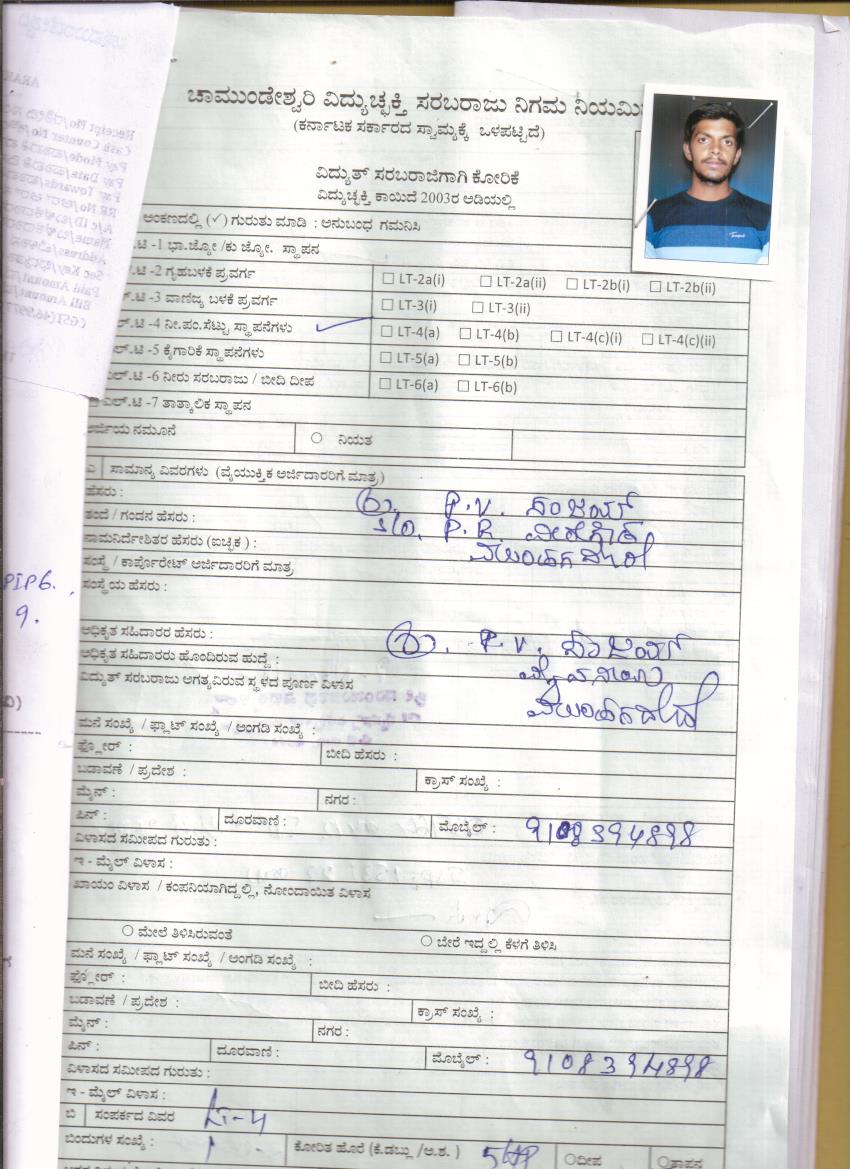 ಚಾಮುಂಡೇಶ್ವರಿ ವಿದ್ಯುಚ್ಛಕ್ತಿ ಸರಬರಾಜು ನಿಗಮ
(ಕರ್ನಾಟಕ ಸರ್ಕಾರದ ಸ್ವಾಮ್ಯಕ್ಕೆ ಒಳಪಟ್ಟಿದೆ)
ವಿದ್ಯುತ್ ಸರಬರಾಜಿಗಾಗಿ ಕೋರಿಕೆ
ವಿದ್ಯುಚ್ಛಕ್ತಿ ಕಾಯಿದೆ 2003ರ ಅಡಿಯಲ್ಲಿ
ಅಂಕಣದಲ್ಲಿ (✓) ಗುರುತು ಮಾಡಿ : ಅನುಬಂಧ ಗಮನಿಸಿ
.ಟಿ -1 ಭಾ.ಜ್ಯೋ /ಕು ಜ್ಯೋ. ಸ್ಥಾಪನ
.ಟಿ -2 ಗೃಹಬಳಕೆ ಪ್ರವರ್ಗ ☐ LT-2a(i) ☐ LT-2a(ii) ☐ LT-2b(i) ☐ LT-2b(ii)
.ಟಿ -3 ವಾಣಿಜ್ಯ ಬಳಕೆ ಪ್ರವರ್ಗ ☐ LT-3(i) ☐ LT-3(ii)
ಲ್.ಟಿ -4 ನೀ.ಪಂ.ಸೆಟ್ಟು ಸ್ಥಾಪನೆಗಳು ✓ ☐ LT-4(a) ☐ LT-4(b) ☐ LT-4(c)(i) ☐ LT-4(c)(ii)
ಲ್.ಟಿ -5 ಕೈಗಾರಿಕೆ ಸ್ಥಾಪನೆಗಳು ☐ LT-5(a) ☐ LT-5(b)
ಎಲ್.ಟಿ -6 ನೀರು ಸರಬರಾಜು / ಬೀದಿ ದೀಪ ☐ LT-6(a) ☐ LT-6(b)
ಎಲ್.ಟಿ -7 ತಾತ್ಕಾಲಿಕ ಸ್ಥಾಪನ
ಅರ್ಜಿಯ ನಮೂನೆ ○ ನಿಯತ
ಎ ಸಾಮಾನ್ಯ ವಿವರಗಳು (ವೈಯುಕ್ತಿಕ ಅರ್ಜಿದಾರರಿಗೆ ಮಾತ್ರ)
ಹೆಸರು : P.V.
ತಂದೆ / ಗಂಡನ ಹೆಸರು : S/o. P.R.
ನಾಮನಿರ್ದೇಶಿತರ ಹೆಸರು (ಐಚ್ಛಿಕ ) :
ಸಂಸ್ಥೆ / ಕಾರ್ಪೊರೇಟ್ ಅರ್ಜಿದಾರರಿಗೆ ಮಾತ್ರ
ಸಂಸ್ಥೆಯ ಹೆಸರು :
ಅಧಿಕೃತ ಸಹಿದಾರರ ಹೆಸರು : P.V.
ಅಧಿಕೃತ ಸಹಿದಾರರು ಹೊಂದಿರುವ ಹುದ್ದೆ :
ವಿದ್ಯುತ್ ಸರಬರಾಜು ಅಗತ್ಯವಿರುವ ಸ್ಥಳದ ಪೂರ್ಣ ವಿಳಾಸ
ಮನೆ ಸಂಖ್ಯೆ / ಫ್ಲಾಟ್ ಸಂಖ್ಯೆ / ಅಂಗಡಿ ಸಂಖ್ಯೆ :
ಫ್ಲೋರ್ : ಬೀದಿ ಹೆಸರು :
ಬಡಾವಣೆ / ಪ್ರದೇಶ : ಕ್ರಾಸ್ ಸಂಖ್ಯೆ :
ಮೈನ್ : ನಗರ :
ಪಿನ್ : ದೂರವಾಣಿ : ಮೊಬೈಲ್ : 9108394898
ವಿಳಾಸದ ಸಮೀಪದ ಗುರುತು :
ಇ - ಮೈಲ್ ವಿಳಾಸ :
ಖಾಯಂ ವಿಳಾಸ / ಕಂಪನಿಯಾಗಿದ್ದಲ್ಲಿ, ನೋಂದಾಯಿತ ವಿಳಾಸ
○ ಮೇಲೆ ತಿಳಿಸಿರುವಂತೆ ○ ಬೇರೆ ಇದ್ದಲ್ಲಿ ಕೆಳಗೆ ತಿಳಿಸಿ
ಮನೆ ಸಂಖ್ಯೆ / ಫ್ಲಾಟ್ ಸಂಖ್ಯೆ / ಅಂಗಡಿ ಸಂಖ್ಯೆ :
ಫ್ಲೋರ್ : ಬೀದಿ ಹೆಸರು :
ಬಡಾವಣೆ / ಪ್ರದೇಶ : ಕ್ರಾಸ್ ಸಂಖ್ಯೆ :
ಮೈನ್ : ನಗರ :
ಪಿನ್ : ದೂರವಾಣಿ : ಮೊಬೈಲ್ : 9108394898
ವಿಳಾಸದ ಸಮೀಪದ ಗುರುತು :
ಇ - ಮೈಲ್ ವಿಳಾಸ :
ಬಿ ಸಂಪರ್ಕದ ವಿವರ LT-4
ಬಿಂದುಗಳ ಸಂಖ್ಯೆ : 1 ಕೋರಿತ ಹೊರೆ (ಕೆ.ಡಬ್ಲು /ಅ.ಶ. ) 5HP ○ದೀಪ ○ತಾಪನ